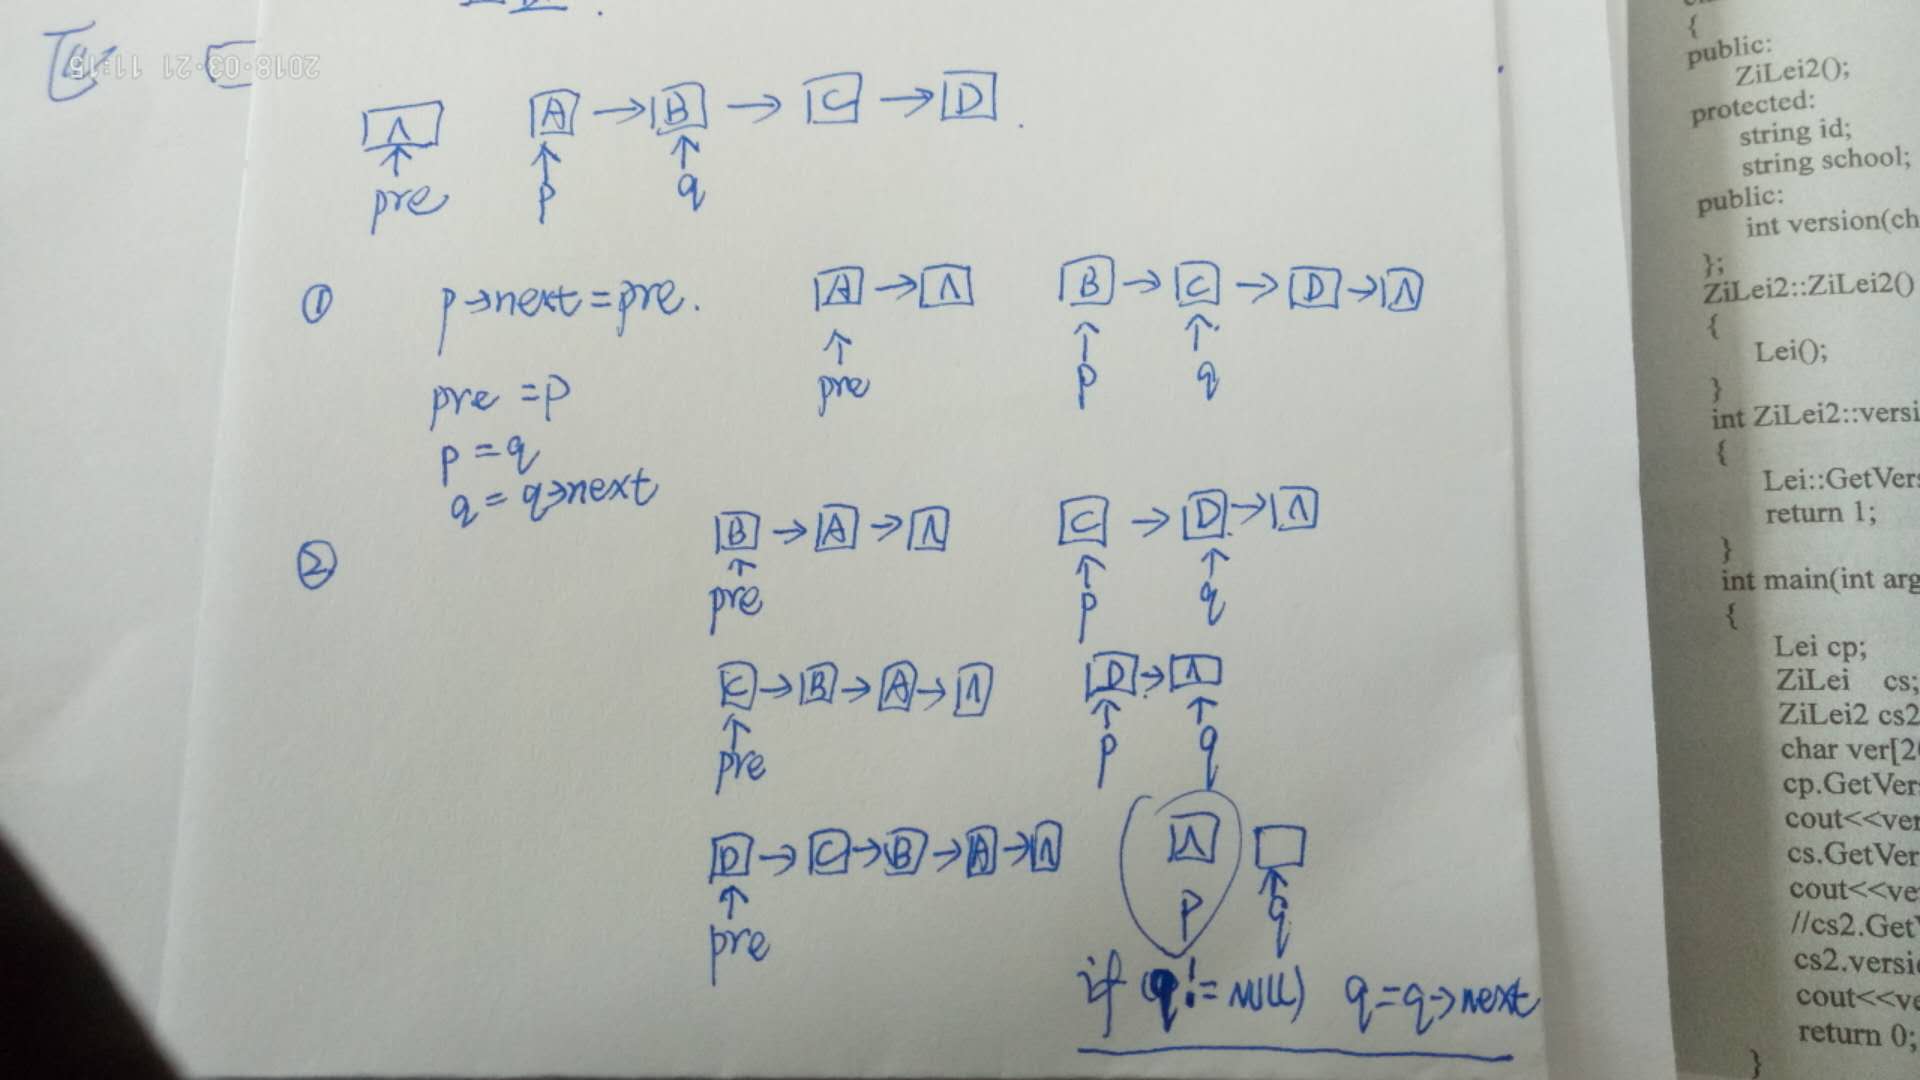 2018·03·21 11:15
Λ A → B → C → D .
pre p q
① p→next = pre. A → Λ B → C → D → Λ
pre p q
pre = p
p = q
q = q→next
② B → A → Λ C → D → Λ
pre p q
C → B → A → Λ D → Λ
pre p q
D → C → B → A → Λ Λ
pre p q
if (q != NULL) q = q→next
{
public:
ZiLei2();
protected:
string id;
string school;
public:
int version(ch
};
ZiLei2::ZiLei2()
{
Lei();
}
int ZiLei2::versi
{
Lei::GetVers
return 1;
}
int main(int arg
{
Lei cp;
ZiLei cs;
ZiLei2 cs2
char ver[20
cp.GetVer
cout<<ver
cs.GetVer
cout<<ve
//cs2.GetV
cs2.versi
cout<<ve
return 0;
}